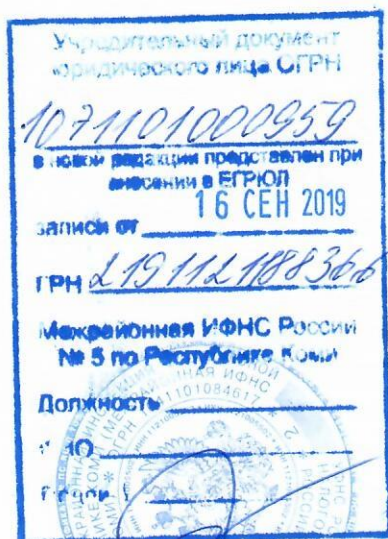 Учредительный документ
юридического лица ОГРН
1071101000959
в новой редакции представлен при
внесении в ЕГРЮЛ
16 СЕН 2019
записи от
ГРН 2191121188366
Межрайонная ИФНС России
№ 5 по Республике Коми
Должность